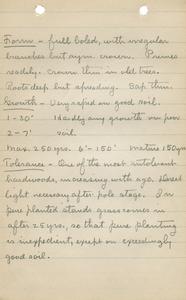 Form - full boled, with irregular
branches but sym. crown. Prunes
readily. Crown thin in old trees.
Roots deep but spreading. Sap thin.
Growth - Very rapid on good soil.
1-30' Hardly any growth on poor
2-7' soil.
Max. 250 yrs. 6'-150' mature 150 yrs
Tolerance - One of the most intolerant
hardwoods, increasing with age. Direct
light necessary after pole stage. In
pure planted stands grass comes in
after 25 yrs, so that pure planting
is inexpedient, exept on exceedingly
good soil.